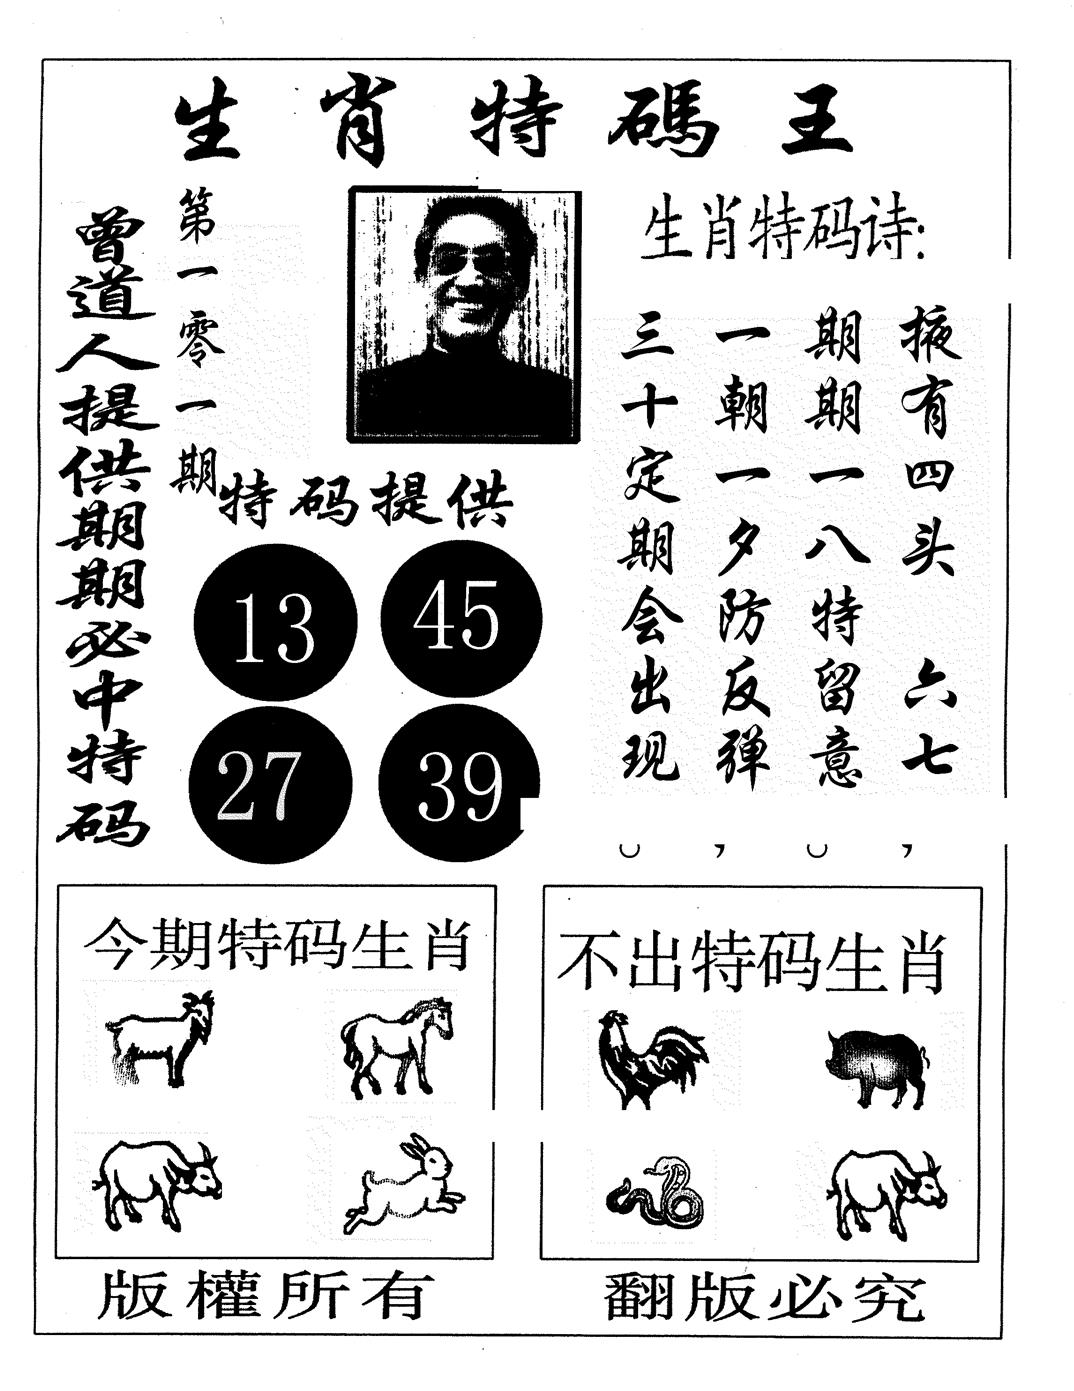 生肖特碼王
曾道人提供期期必中特码
第一零一期
生肖特码诗:
掖有四头 六七，
期期一八特留意。
一朝一夕防反弹，
三十定期会出现。
特码提供
13 45
27 39
今期特码生肖
不出特码生肖
版權所有
翻版必究